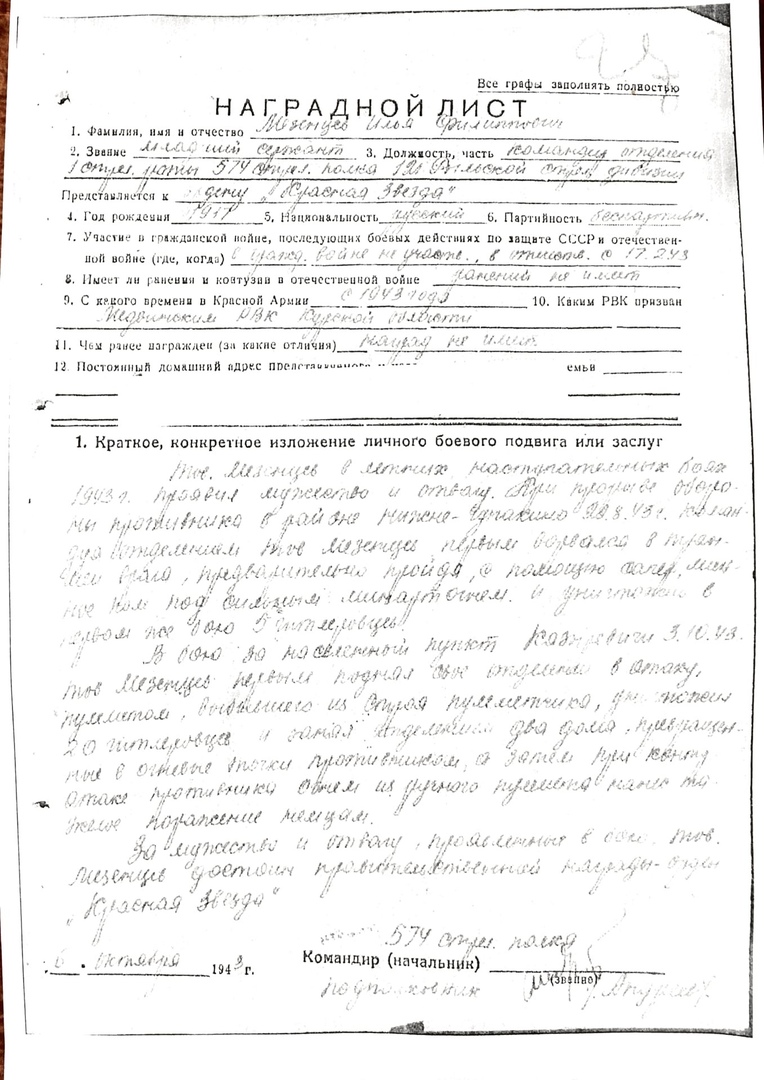 Все графы заполнять полностью
НАГРАДНОЙ ЛИСТ
1. Фамилия, имя и отчество Мезенцев Илья Филиппович
2. Звание младший сержант 3. Должность, часть командир отделения
1 стрел. роты 574 стрел. полка 121 Рыльской стрел. дивизии
Представляется к ордену „Красная Звезда"
4. Год рождения 1917 5. Национальность русский 6. Партийность беспартийн.
7. Участие в гражданской войне, последующих боевых действиях по защите СССР и отечествен-
ной войне (где, когда) в гражд. войне не участв., в отечеств. с 17.2.43
8. Имеет ли ранения и контузии в отечественной войне ранений не имеет
9. С какого времени в Красной Армии с 1943 года 10. Каким РВК призван
РВК Курской области
11. Чем ранее награжден (за какие отличия) наград не имеет
12. Постоянный домашний адрес семьи
1. Краткое, конкретное изложение личного боевого подвига или заслуг
Тов. Мезенцев в летних наступательных боях
1943 г. проявил мужество и отвагу. При прорыве оборо-
ны противника в районе 28.8.43 г. коман-
дуя отделением тов Мезенцев первым ворвался в тран-
шеи врага, предварительно пройдя, с помощью сапер, мин-
ное под сильным минартогнем. и уничтожил в
первом же бою 5 гитлеровцев.
В бою за населенный пункт 3.10.43.
тов Мезенцев первым поднял свое отделение в атаку,
пулеметом, выбывшего из строя пулеметчика, уничтожил
20 гитлеровцев и занял отделением два дома, превращен-
ные в огневые точки противником, а затем при контр
атаке противника огнем из ручного пулемета нанес тя-
желое поражение немцам.
За мужество и отвагу, проявленные в бою, тов.
Мезенцев достоин правительственной награды-орден
„Красная Звезда"
574 стрел. полка
6 . октября 1943 г. Командир (начальник)
(звание)
подполковник